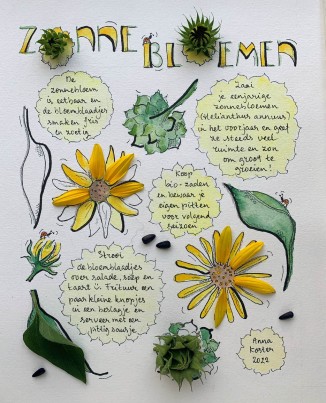 ZONNE
BLOEMEN
De
zonnebloem
is eetbaar en
de bloemblaadjes
smaken fris
en zoetig.
Zaai
je eenjarige
zonnebloemen
(Helianthus annuus)
in het voorjaar en geef
ze steeds veel
ruimte en zon
om groot te
groeien!
Koop
bio-zaden
en bewaar je
eigen pitten
voor volgend
seizoen
Strooi
de bloemblaadjes
over salade, soep en
taart :) Frituur een
paar kleine knopjes
in een beslagje en
serveer met een
pittig sausje
Anna
Koster
2022